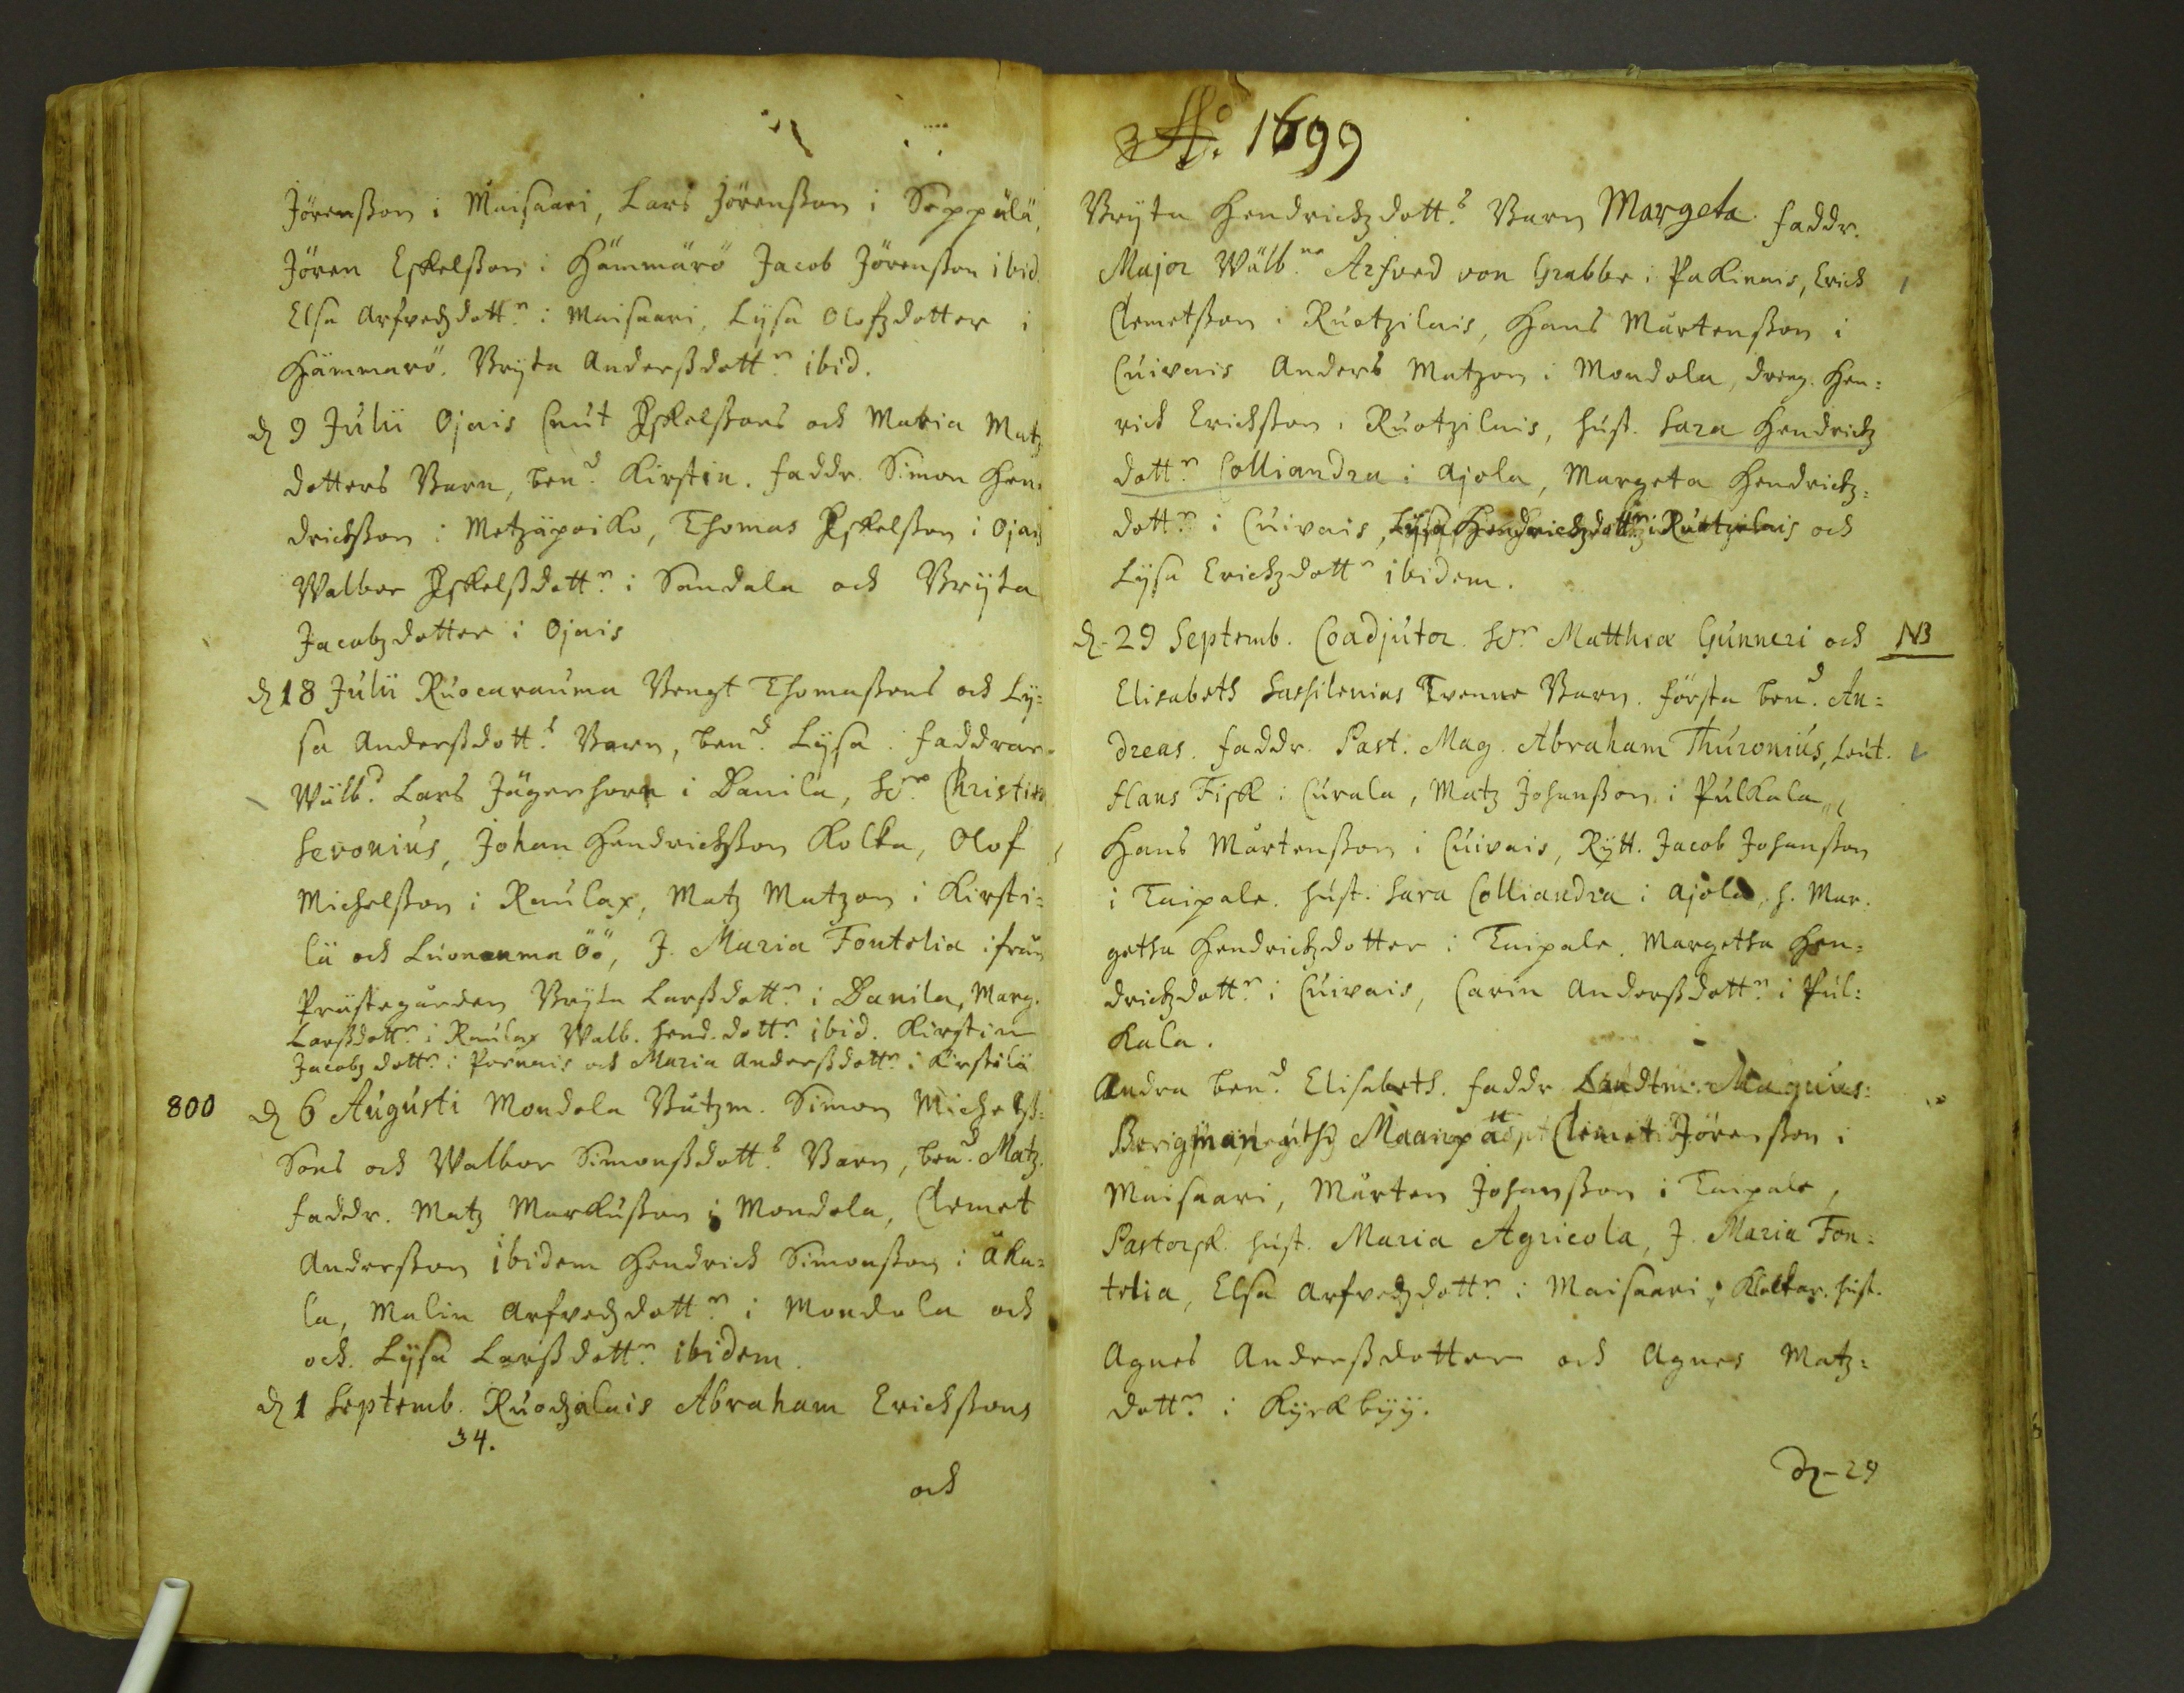 Jörensson i Maisaari, Lars Jörensson i Seppälä,
Jören Eskelsson i Hämmärö Jacob Jörensson ibid.
Elsa Arfvedzdottr i Maisaari, Lysa Olofzdotter i
Hämmarö. Bryta Anderssdottr ibid.
d 9 Julii Ojais Cnut Eskelssons och Maria Matz
dotters Barn, bend Kirstin. faddr. Simon Hen-
dricksson i Metzäpoiko, Thomas Eskelsson i Ojais
Walbor Eskelssdottr i Sandala och Bryta
Jacobzdotter i Ojais
d 18 Julii Ruocarauma Bengt Thomassons och Ly=
sa Anderssdotts Barn, bend Lysa. faddrar
Wälbd Lars Jägerhorn i Danila, Hr Christier
Seronius, Johan Hendricksson Kolka, Olof
Michelsson i Raulax, Matz Matzon i Kirsti=
lä och Luonanma Öö, J. Maria Fontelia ifrån
Prästegården Bryta Larssdottr i Danila, Marg.
Larssdottr i Raulax Walb. Hend.dottr ibid. Kirstin
Jacobzdottr i Pornais och Maria Anderssdottr i Kirstilä
800 d 6 Augusti Mondola Båtzm. Simon Michelss=
Sons och Walbor Simonssdotts Barn, bend Matz.
faddr. Matz Markusson i Mondola, Clemet
Andersson ibidem Hendrick Simonsson i Äku=
la, Malin Arfvedzdottr i Mondola och
och Lysa Larssdottr ibidem.
d 1 Septemb. Ruodzalais Abraham Ericksons
34.
och
Ao 1699
Bryta Hendrickzdotts Barn Margeta. faddr.
Major Wälbne Arfved von Grabbe i Pakinais, Erick
Clemetsson i Ruotzilais, Hans Mårtensson i
Cuivais Anders Matzon i Mondola, dreng. Hen=
rick Ericksson i Ruotzilais, hust. Sara Hendrickz
dottr Colliandra i Ajola, Margeta Hendrickz=
dottr i Cuivais, Lysa Hendrickzdottr i Ruotzilais och
Lysa Erickzdottr ibidem.
d-29 Septemb. Coadjutor. Hr Matthiæ Gunneri och NB
Elisabeth Sassilenias Tvenne Barn. första bend An=
dreas. faddr. Past. Mag. Abraham Thuronius, Leut.
Hans Fisk i Curala, Matz Johansson i Pulkala
Hans Mårtensson i Cuivais, Rytt. Jacob Johansson
i Taipale. hust. Sara Colliandra i Ajola, h. Mar.
getha Hendrickzdotter i Taipale. Margetha Hen=
drickzdottr i Cuivais, Carin Anderssdottr i Pul=
kala.
Andra bend Elisabeth. faddr Landtm. Magnus
Bergman Clemet Jörensson i
Maisaari, Mårten Johansson i Taipale,
Pastorsk. hust. Maria Agricola, J. Maria Fon=
telia, Elsa Arfvedzdottr i Maisaari, Klockar. hust.
Agnes Anderssdotter och Agnes Matz=
dottr i Kyrkbyy.
d-29